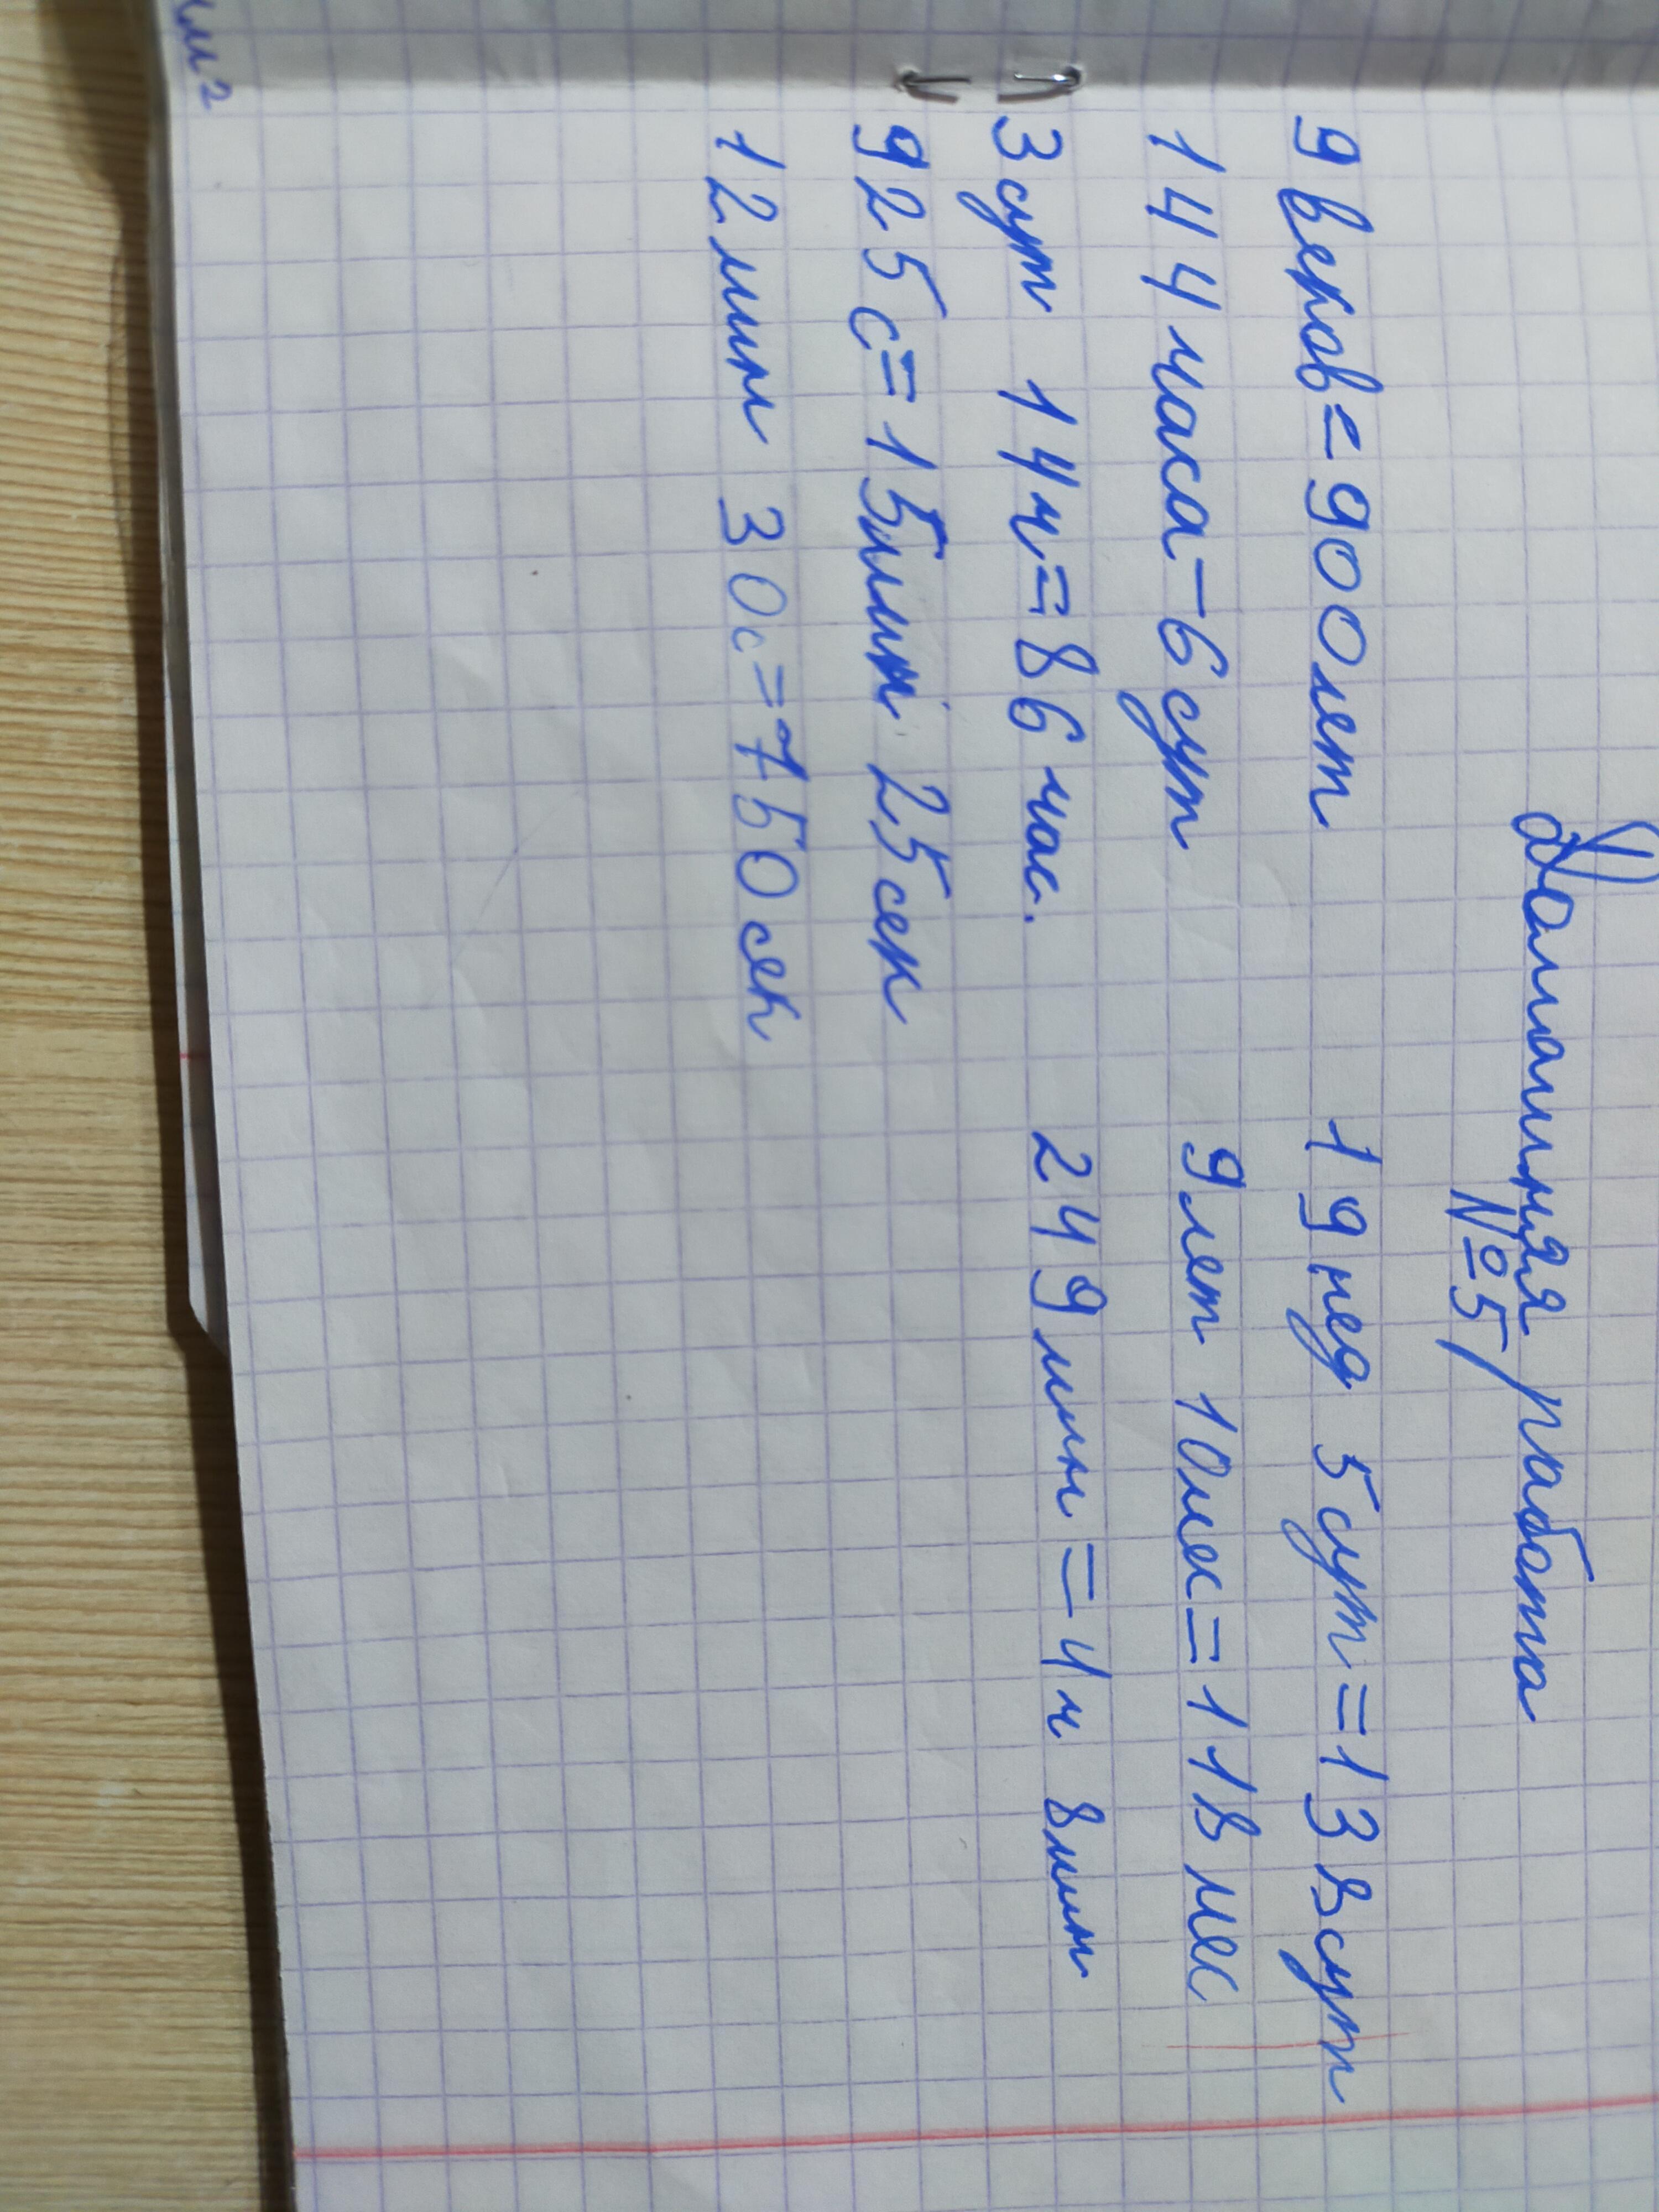 Домашняя работа
№5
9 веков=900лет 19 нед 5 сут=138 сут
144 часа=6 сут 9 лет 10 мес=118 мес
3 сут 14ч=86 час. 249 мин=4ч 8 мин
925 с=15 мин 25 сек
12 мин 30с=750 сек